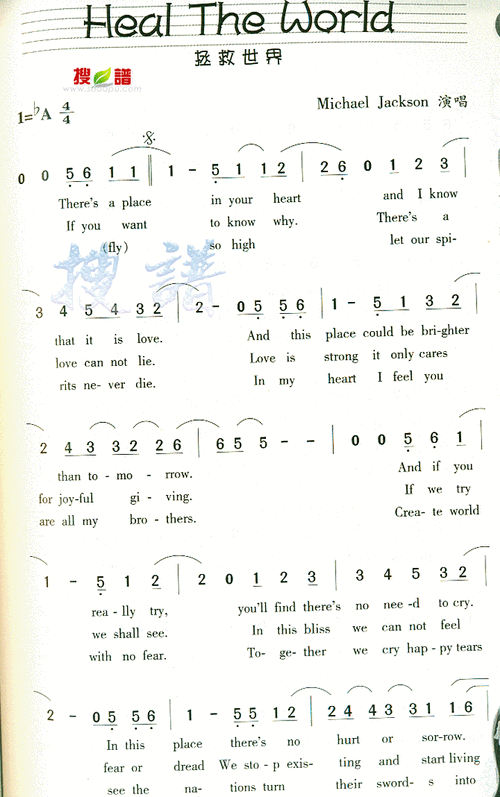 Heal The World
拯救世界
搜谱
www.sooopu.com
Michael Jackson 演唱
1=♭A 4/4
0 0 5 6 1 1 | 1 - 5 1 1 2 | 2 6 0 1 2 3 |
There's a place in your heart and I know
If you want to know why. There's a
(fly) so high let our spi-
搜譜
3 4 5 4 3 2 | 2 - 0 5 5 6 | 1 - 5 1 3 2 |
that it is love. And this place could be bri-ghter
love can not lie. Love is strong it only cares
rits ne- ver die. In my heart I feel you
2 4 3 3 2 2 6 | 6 5 5 - - | 0 0 5 6 1 |
than to- mo - rrow. And if you
for joy-ful gi - ving. If we try
are all my bro - thers. Crea- te world
1 - 5 1 2 | 2 0 1 2 3 | 3 4 5 3 2 |
rea- lly try, you'll find there's no nee-d to cry.
we shall see. In this bliss we can not feel
with no fear. To- ge- ther we cry hap- py tears
2 - 0 5 5 6 | 1 - 5 5 1 2 | 2 4 4 3 3 1 1 6 |
In this place there's no hurt or sor- row.
fear or dread We sto- p exis- ting and start living
see the na- tions turn their sword- s into